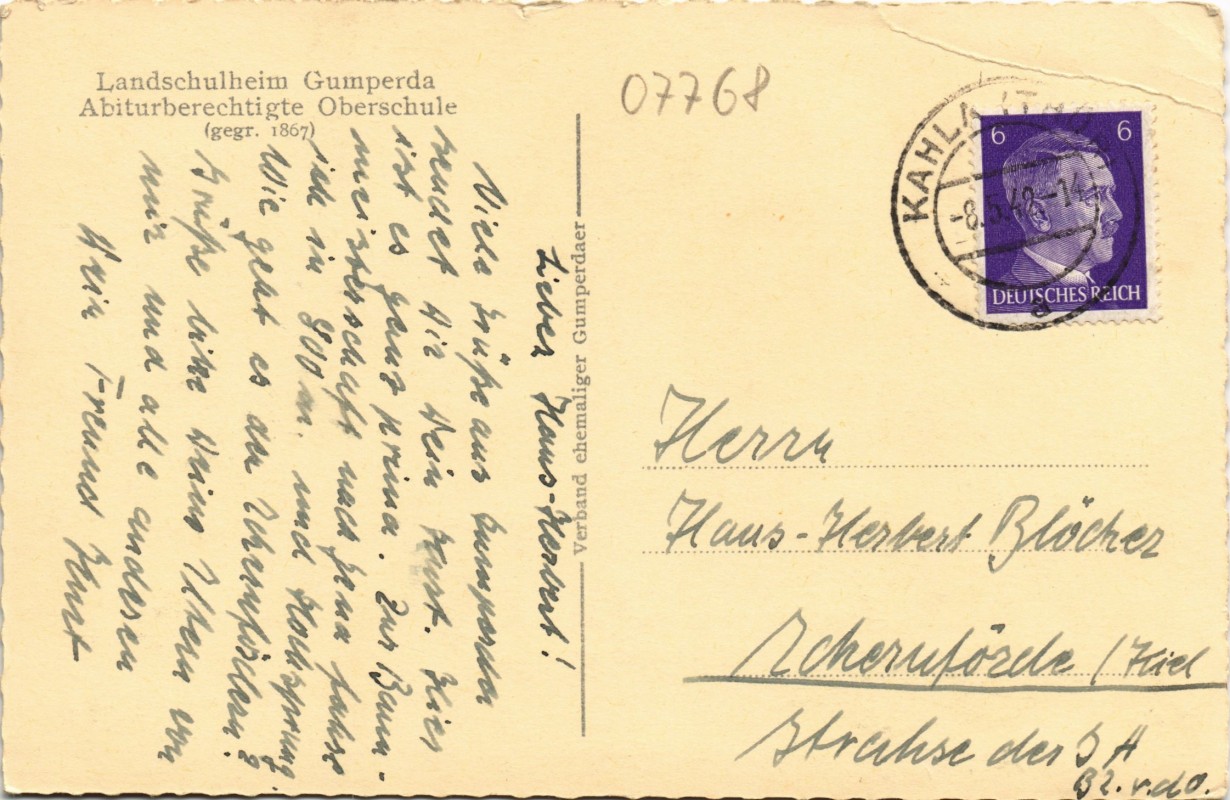 Landschulheim Gumperda
Abiturberechtigte Oberschule
(gegr. 1867)
Lieber Hans-Herbert!
Viele Grüße aus Gumperda
sendet dir dein Kurt. Hier
ist es ganz prima. Zur Bann-
meisterschaft nach Jena fahre
ich in 800 m. und Hochsprung.
Wie geht es den Eckernfördern?
Grüße bitte deine Eltern von
mir und alle anderen
Dein Freund Kurt
Verband ehemaliger Gumperdaer
07768
KAHLA (THÜR
8.5.42-14
a
6 6
DEUTSCHES REICH
Herrn
Hans-Herbert Blöcher
Eckernförde / Kiel
Strahse der SA
82. v.d0.